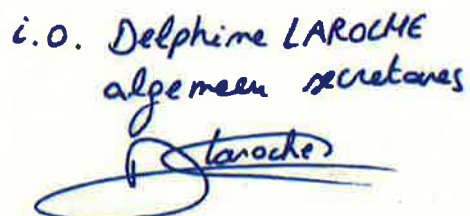 i.o. Delphine LAROCHE
algemeen secretares
Dlaroche